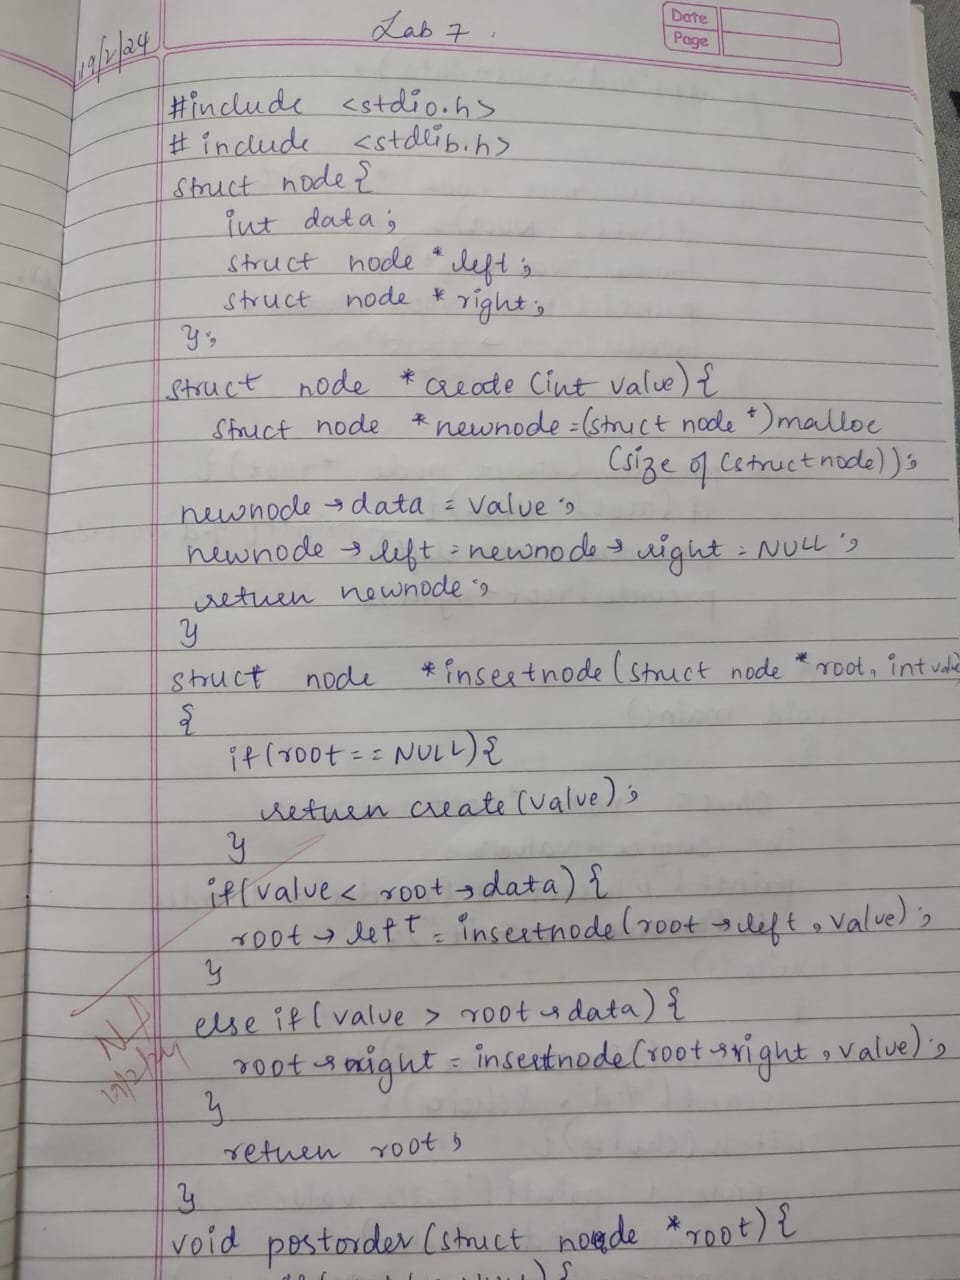 19/2/24
Lab 7.
Date
Page
#include <stdio.h>
# include <stdlib.h>
struct node {
int data;
struct node *left;
struct node *right;
};
struct node *create (int value) {
struct node *newnode = (struct node *) malloc
(size of (struct node));
newnode → data = value;
newnode → left = newnode → right = NULL;
return newnode;
}
struct node *insertnode (struct node *root, int value)
{
if (root == NULL) {
return create (value);
}
if (value < root → data) {
root → left = insertnode (root → left, value);
}
else if (value > root → data) {
root → right = insertnode (root → right, value);
}
return root;
}
void postorder (struct node *root) {